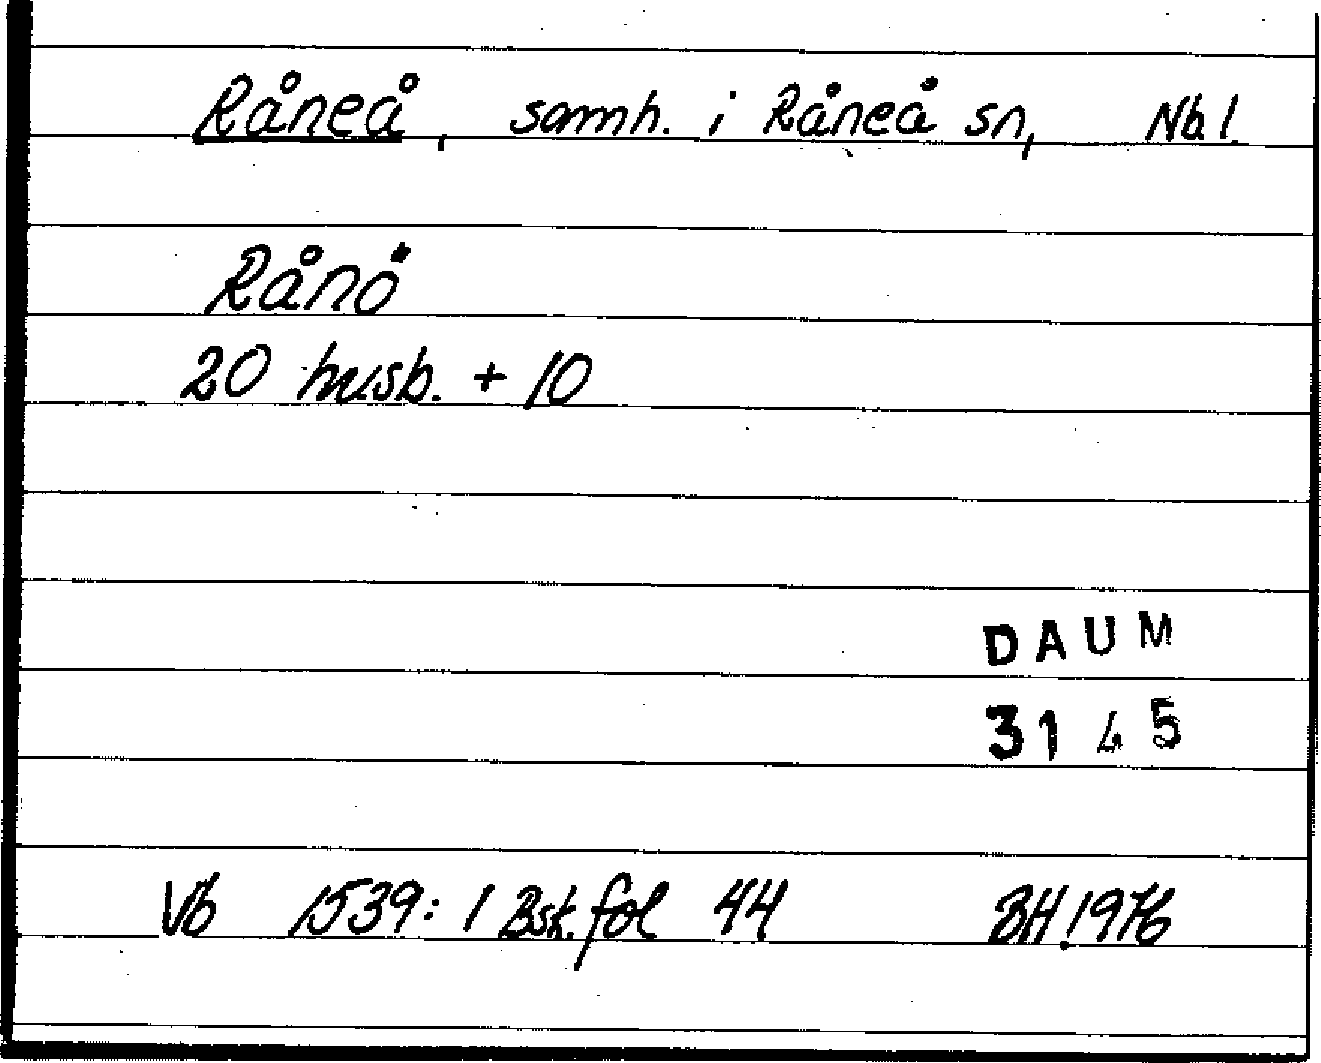 Råneå, samh. i Råneå sn, Nb l.
Rånö
20 husb. + 10
DAUM
3145
Vb 1539:1 Bsk. fol 44 BH! 1976